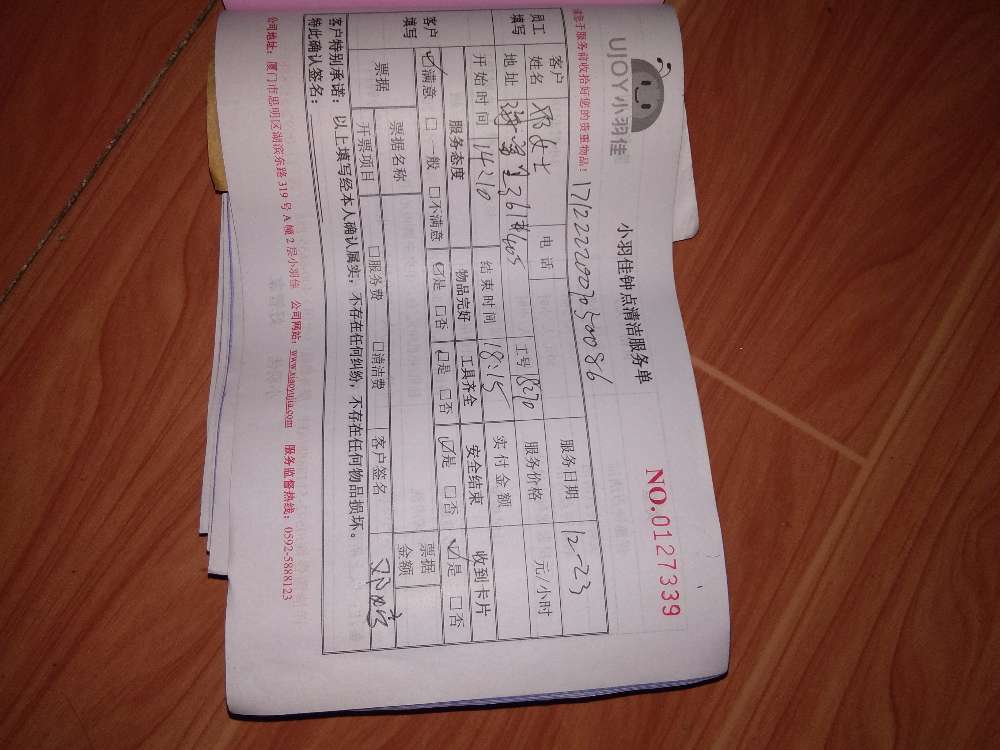 UJOY小羽佳
小羽佳钟点清洁服务单
NO.0127339
请您于服务前收拾好您的贵重物品！
171222200070500086
员工填写
客户姓名 邓女士 电话 服务日期 12-23
地址 361 405 工号 18270 服务价格 元/小时
开始时间 14:10 结束时间 18:15 实付金额
客户填写
服务态度 物品完好 工具齐全 安全结束 收到卡片
☑满意 □一般 □不满意 ☑是 □否 ☑是 □否 ☑是 □否 ☑是 □否
票据 票据名称 票据金额
开票项目 □服务费 □清洁费 客户签名
客户特别承诺：以上填写经本人确认属实，不存在任何纠纷，不存在任何物品损坏。
特此确认签名：
公司地址：厦门市思明区湖滨东路319号A幢2层小羽佳 公司网站：www.xiaoyujia.com 服务监督热线：0592-5888123